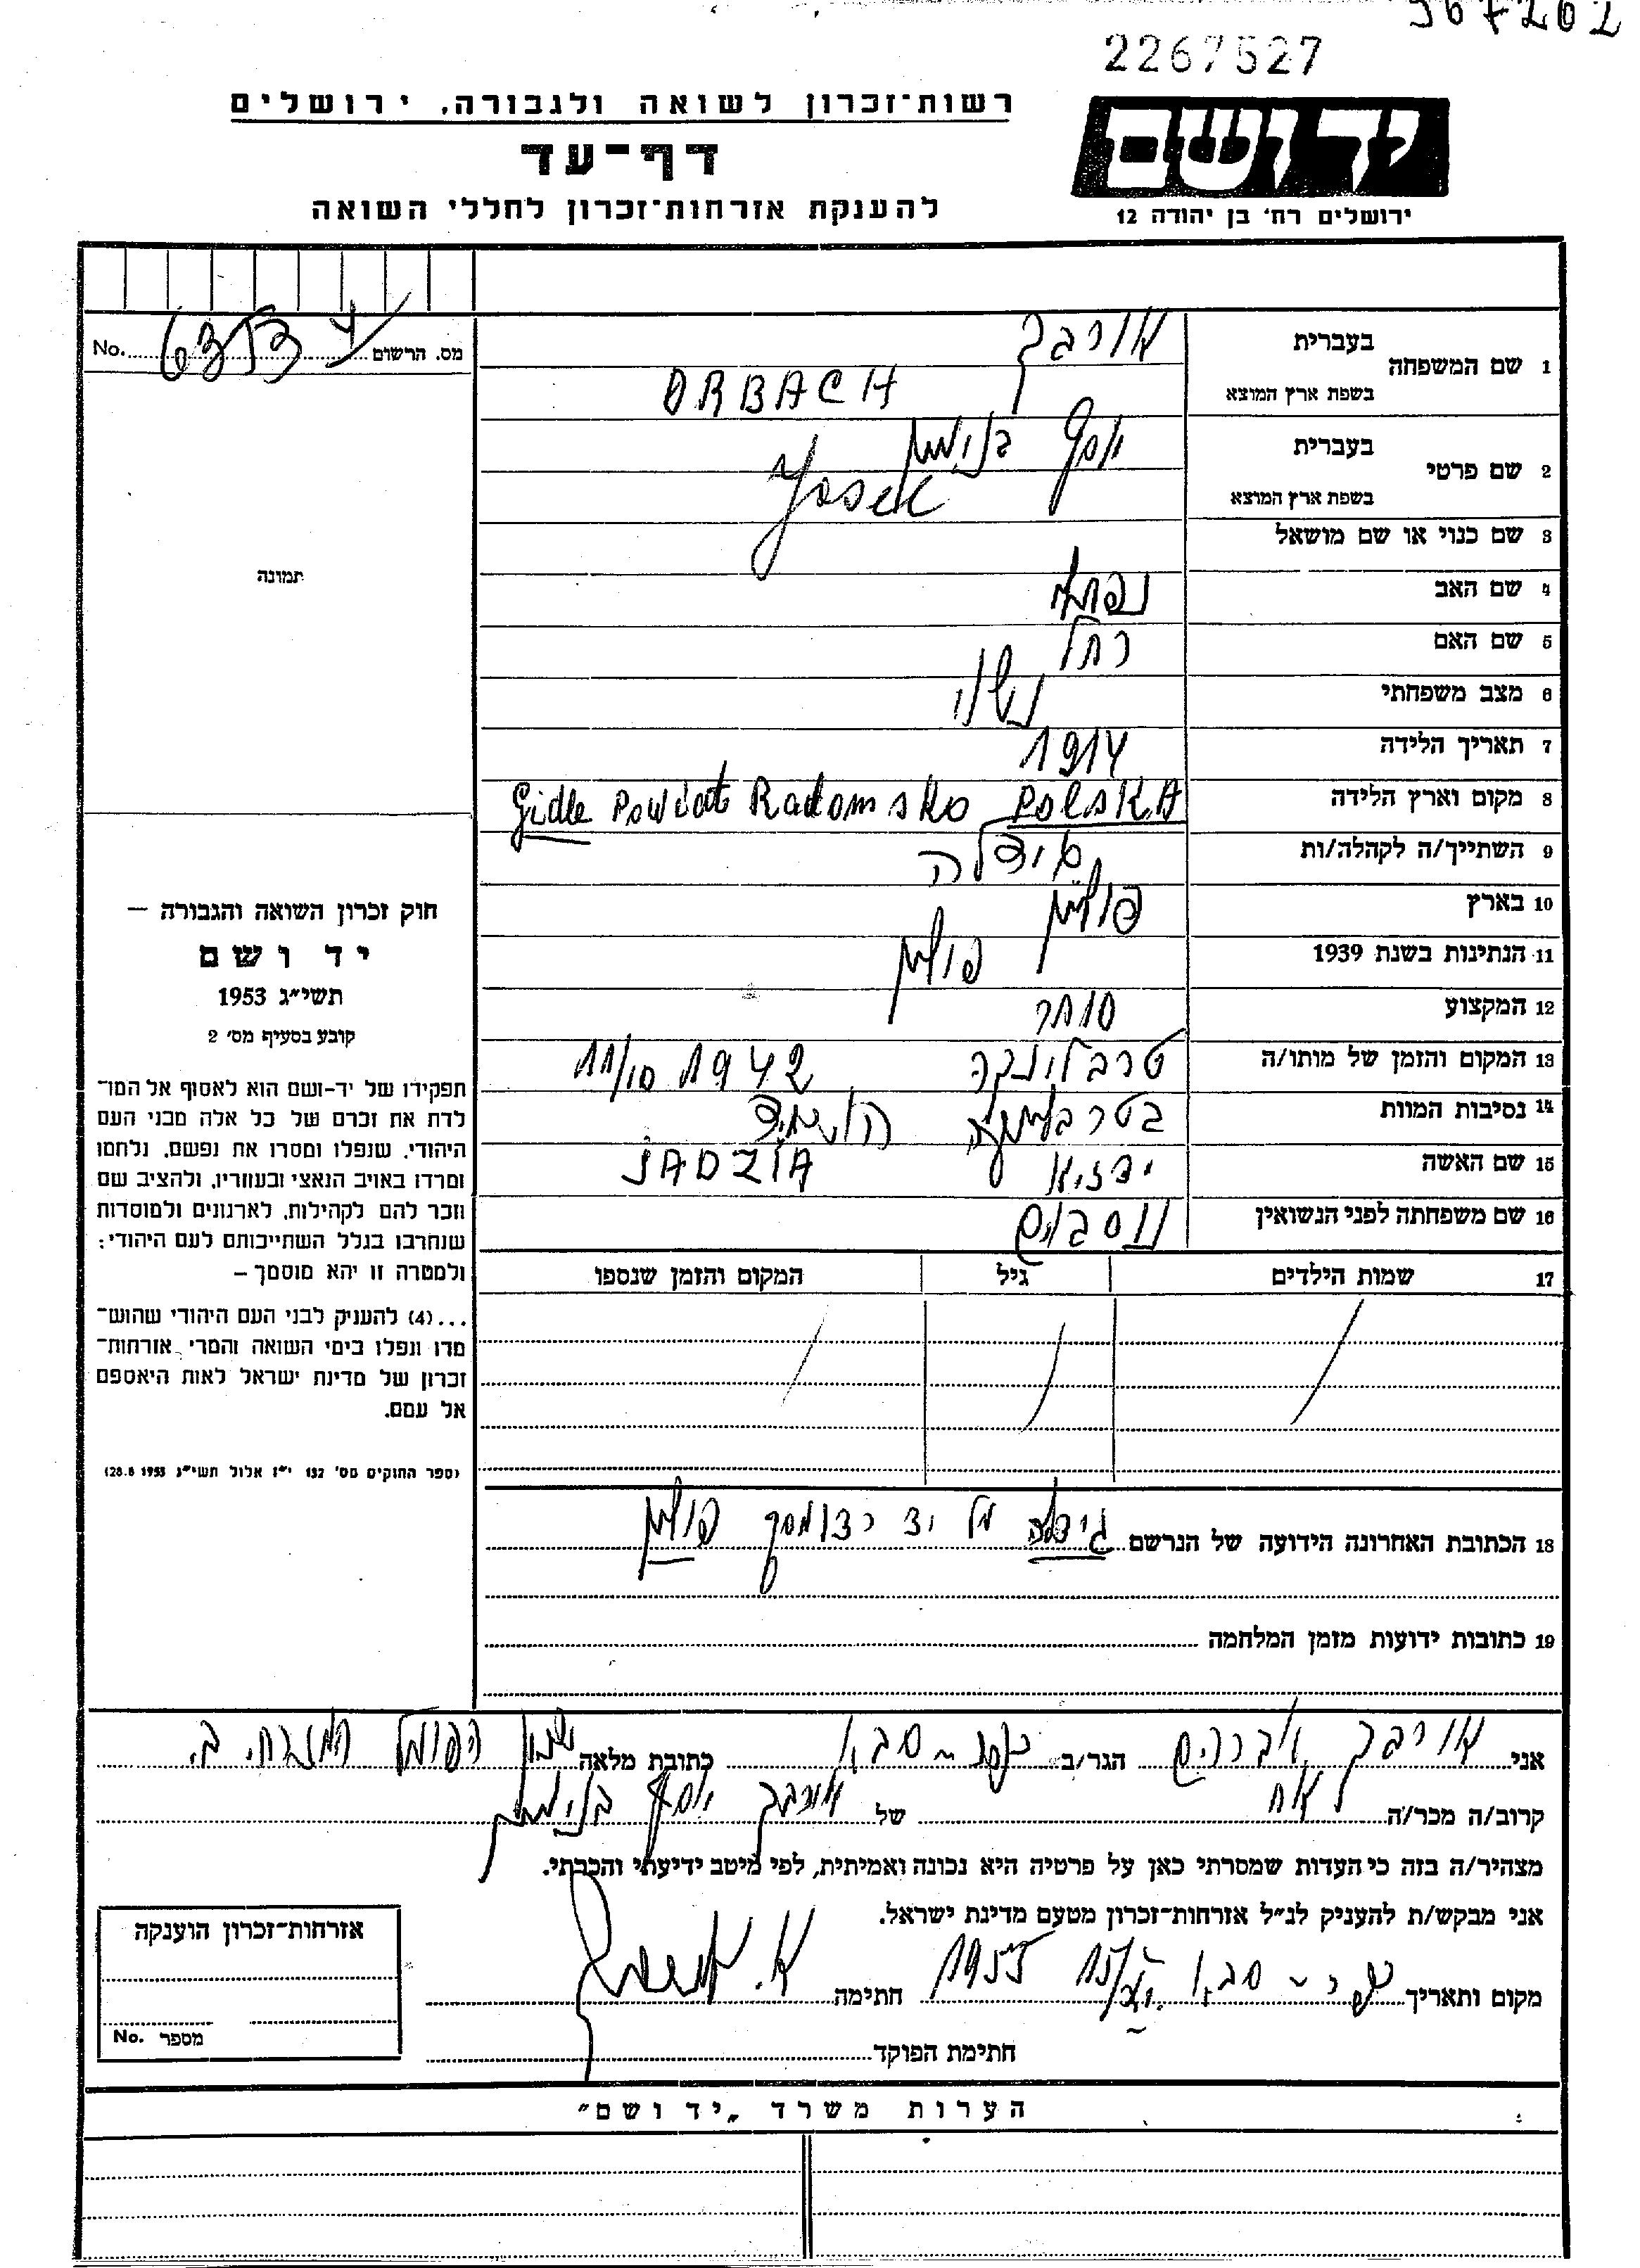 2267527
רשות־זכרון לשואה ולגבורה, ירושלים
דף־עד
להענקת אזרחות־זכרון לחללי השואה
יד ושם
ירושלים רח' בן יהודה 12
מס. הרשום No.
1 שם המשפחה בעברית אורבך
בשפת ארץ המוצא ORBACH
2 שם פרטי בעברית יוסף בנימין
בשפת ארץ המוצא Yosek
3 שם כנוי או שם מושאל
4 שם האב
5 שם האם רחל
6 מצב משפחתי נשוי
7 תאריך הלידה 1914
8 מקום וארץ הלידה Gidle Powiat Radomsko POLSKA
9 השתייך/ה לקהלה/ות גידלה
10 בארץ פולין
11 הנתינות בשנת 1939 פולין
12 המקצוע סוחר
13 המקום והזמן של מותו/ה טרבלינקה 11/10 1942
14 נסיבות המוות בטרבלינקה
15 שם האשה ידזיא JADZIA
16 שם משפחתה לפני הנשואין
17 שמות הילדים גיל המקום והזמן שנספו
18 הכתובת האחרונה הידועה של הנרשם גידלה על יד רדומסק פולין
19 כתובות ידועות מזמן המלחמה
תמונה
חוק זכרון השואה והגבורה —
יד ושם
תשי״ג 1953
קובע בסעיף מס' 2
תפקידו של יד־ושם הוא לאסוף אל המו־
לדת את זכרם של כל אלה מבני העם
היהודי, שנפלו ומסרו את נפשם, נלחמו
ומרדו באויב הנאצי ובעוזריו, ולהציב שם
וזכר להם לקהילות, לארגונים ולמוסדות
שנחרבו בגלל השתייכותם לעם היהודי;
ולמטרה זו יהא מוסמך —
...(4) להעניק לבני העם היהודי שהוש־
מדו ונפלו בימי השואה והמרי אזרחות־
זכרון של מדינת ישראל לאות היאספם
אל עמם.
(ספר החוקים מס' 132 י״ז אלול תשי״ג 28.8.1953)
אני אורבך אברהם הגר/ב כפר-סבא כתובת מלאה שכון הפועל המזרחי ב.
קרוב/ה מכר/ה אח של אורבך יוסף בנימין
מצהיר/ה בזה כי העדות שמסרתי כאן על פרטיה היא נכונה ואמיתית, לפי מיטב ידיעתי והכרתי.
אני מבקש/ת להעניק לנ״ל אזרחות־זכרון מטעם מדינת ישראל.
מקום ותאריך כפר-סבא 1955 חתימה
חתימת הפוקד
אזרחות־זכרון הוענקה
מספר No.
הערות משרד „יד ושם״